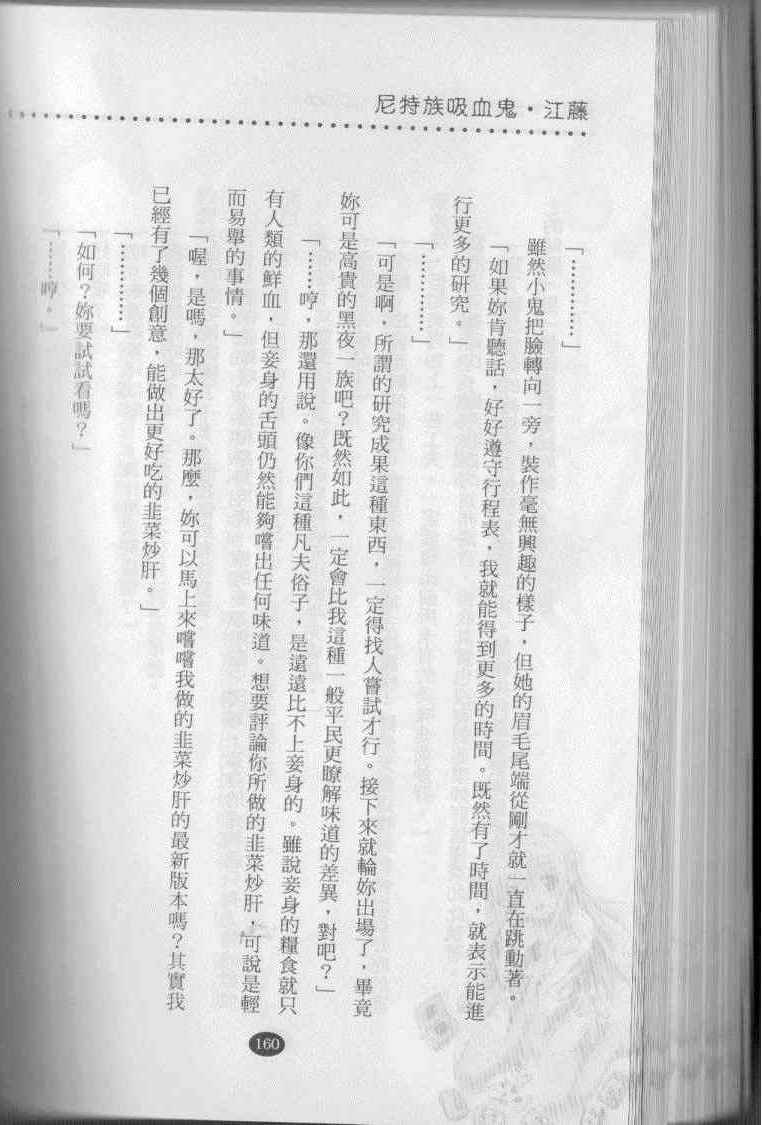 尼特族吸血鬼・江藤
「…………」
雖然小鬼把臉轉向一旁，裝作毫無興趣的樣子，但她的眉毛尾端從剛才就一直在跳動著。
「如果妳肯聽話，好好遵守行程表，我就能得到更多的時間。既然有了時間，就表示能進
行更多的研究。」
「…………」
「可是啊，所謂的研究成果這種東西，一定得找人嘗試才行。接下來就輪妳出場了，畢竟
妳可是高貴的黑夜一族吧？既然如此，一定會比我這種一般平民更瞭解味道的差異，對吧？」
「……哼，那還用說。像你們這種凡夫俗子，是遠遠比不上妾身的。雖說妾身的糧食就只
有人類的鮮血，但妾身的舌頭仍然能夠嚐出任何味道。想要評論你所做的韭菜炒肝，可說是輕
而易舉的事情。」
「喔，是嗎，那太好了。那麼，妳可以馬上來嚐嚐我做的韭菜炒肝的最新版本嗎？其實我
已經有了幾個創意，能做出更好吃的韭菜炒肝。」
「…………」
「如何？妳要試試看嗎？」
「……哼。」
160